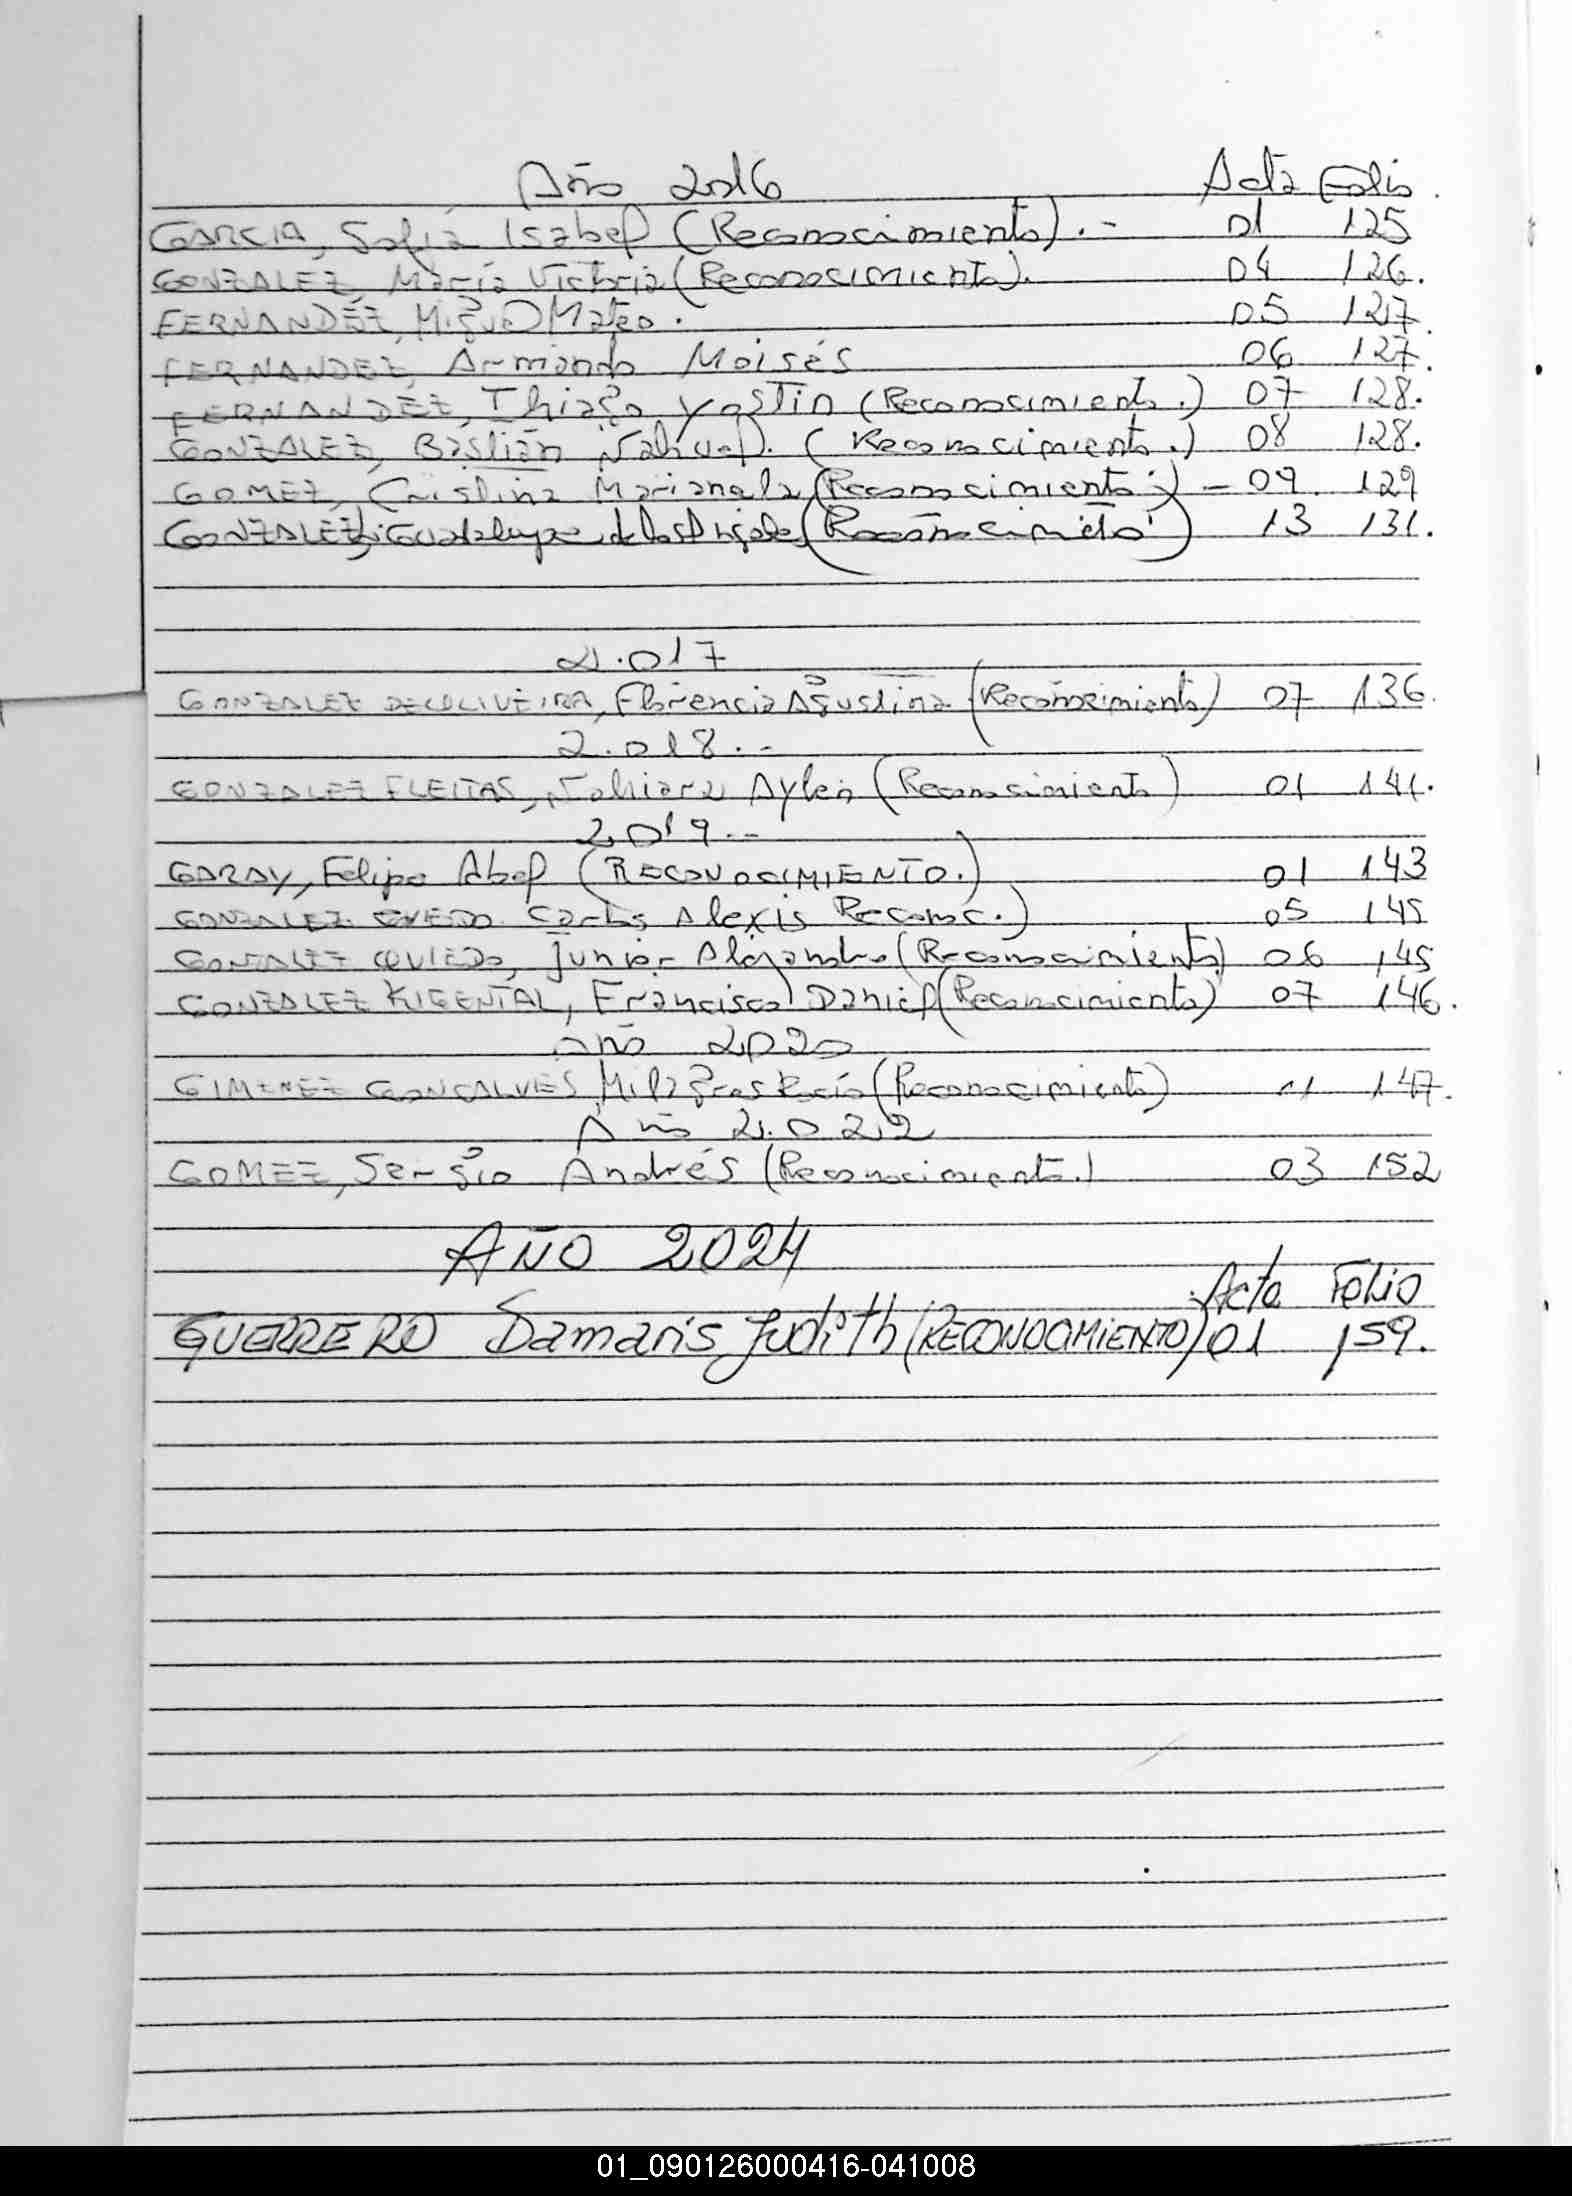 Año 2016 Acta Folio.
GARCIA, Sofía Isabel (Reconocimiento).- 01 125
GONZALEZ, María Victoria (Reconocimiento). 04 126.
FERNANDEZ, Miguel Mateo. 05 127.
FERNANDEZ, Armando Moisés 06 127.
FERNANDEZ, Thiago Yastin (Reconocimiento.) 07 128.
GONZALEZ, Bastián Nahuel. (Reconocimiento.) 08 128.
GOMEZ, Cristina Marianela (Reconocimiento.) - 09 129
GONZALEZ, Guadalupe de los Angeles (Reconocimieto) 13 131.
2.017
GONZALEZ DE OLIVEIRA, Florencia Agustina (Reconocimiento) 07 136.
2.018.-
GONZALEZ FLEITAS, Nahiara Aylen (Reconocimiento) 01 141.
2.019.-
GARAY, Felipe Abel (RECONOCIMIENTO.) 01 143
GONZALEZ OVIEDO Carlos Alexis Reconoc.) 05 145
GONZALEZ OVIEDO, Junior Alejandro (Reconocimiento) 06 145
GONZALEZ, Francisco Daniel (Reconocimiento) 07 146.
Año 2020
GIMENEZ GONCALVES, Milagros Rocío (Reconocimiento) 01 147.
Año 2.022
GOMEZ, Sergio Andrés (Reconocimiento.) 03 152
AÑO 2024
Acta Folio
GUERRERO Damaris Judith (RECONOCIMIENTO) 01 159.
01_090126000416-041008